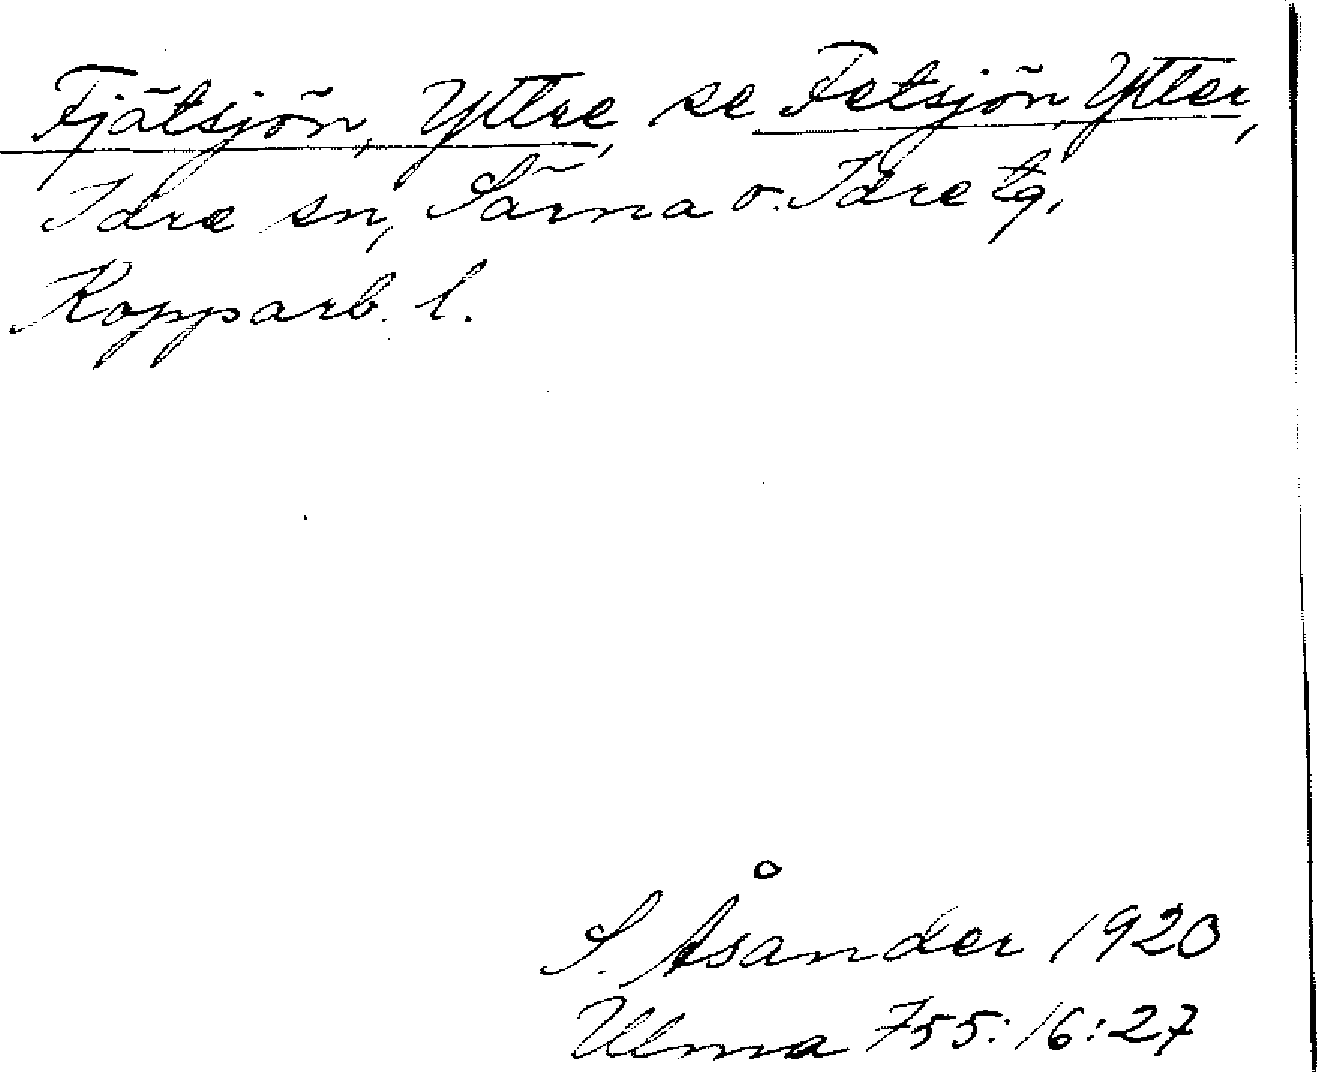 Fjätsjön, Yttre, se Fetsjön, Ytter,
Idre sn, Särna o. Idre tg,
Kopparb. l.
S. Åsander 1920
Ulma 755:16:27